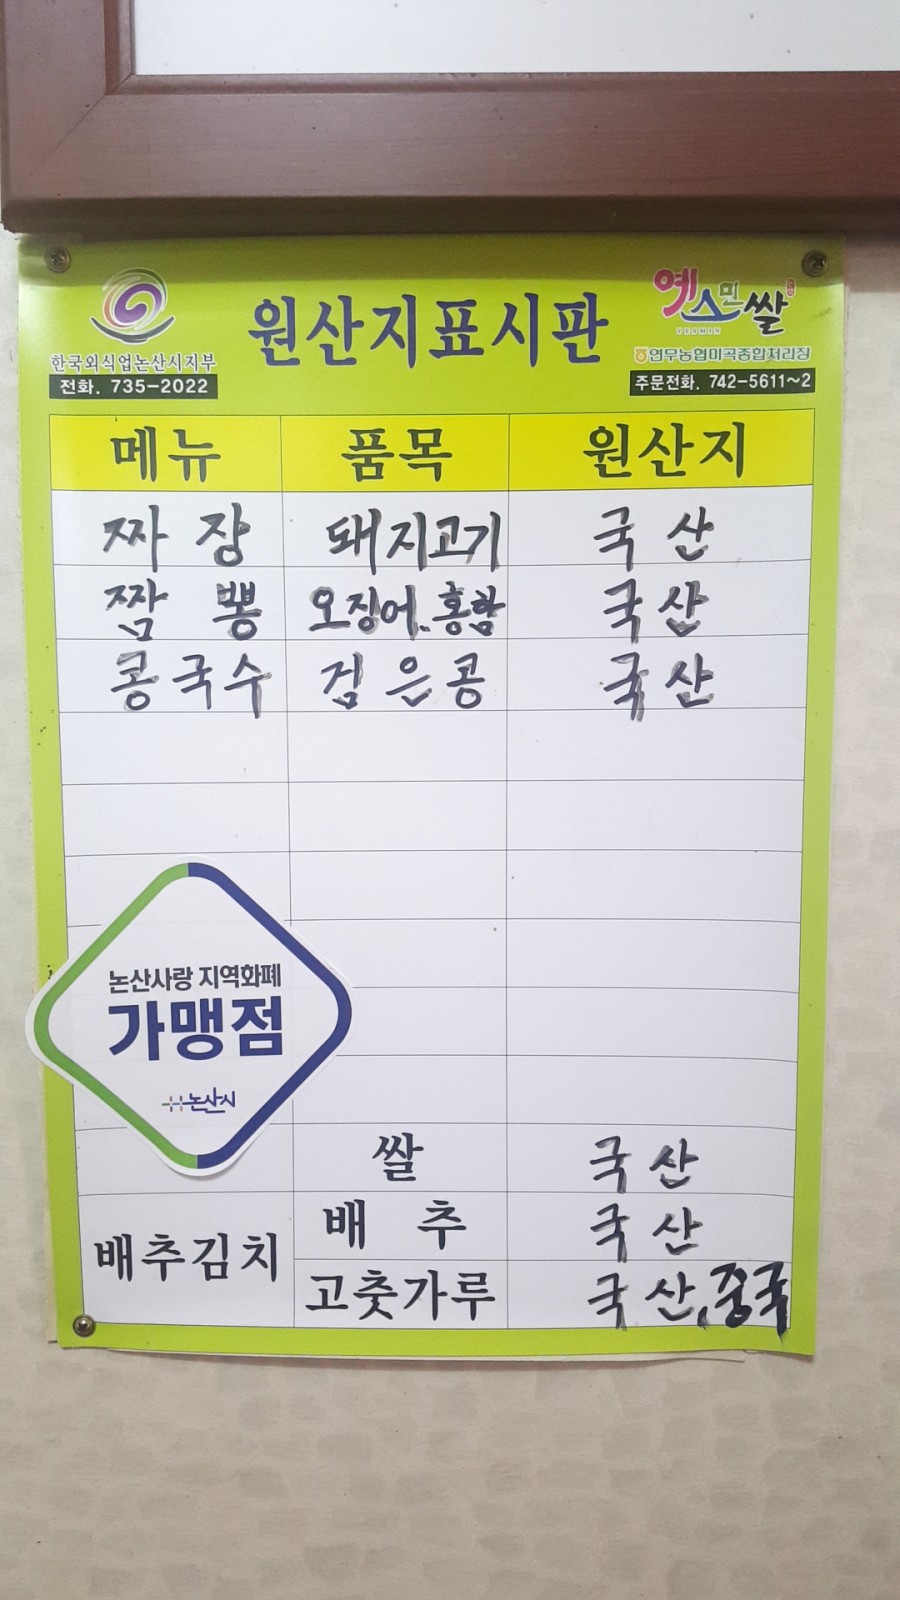 원산지표시판
한국외식업논산시지부
전화. 735-2022
예스민쌀
YESMIN
연무농협미곡종합처리장
주문전화. 742-5611~2
메뉴 품목 원산지
짜장 돼지고기 국산
짬뽕 오징어.홍합 국산
콩국수 검은콩 국산
논산사랑 지역화폐
가맹점
논산시
쌀 국산
배추김치 배추 국산
고춧가루 국산,중국